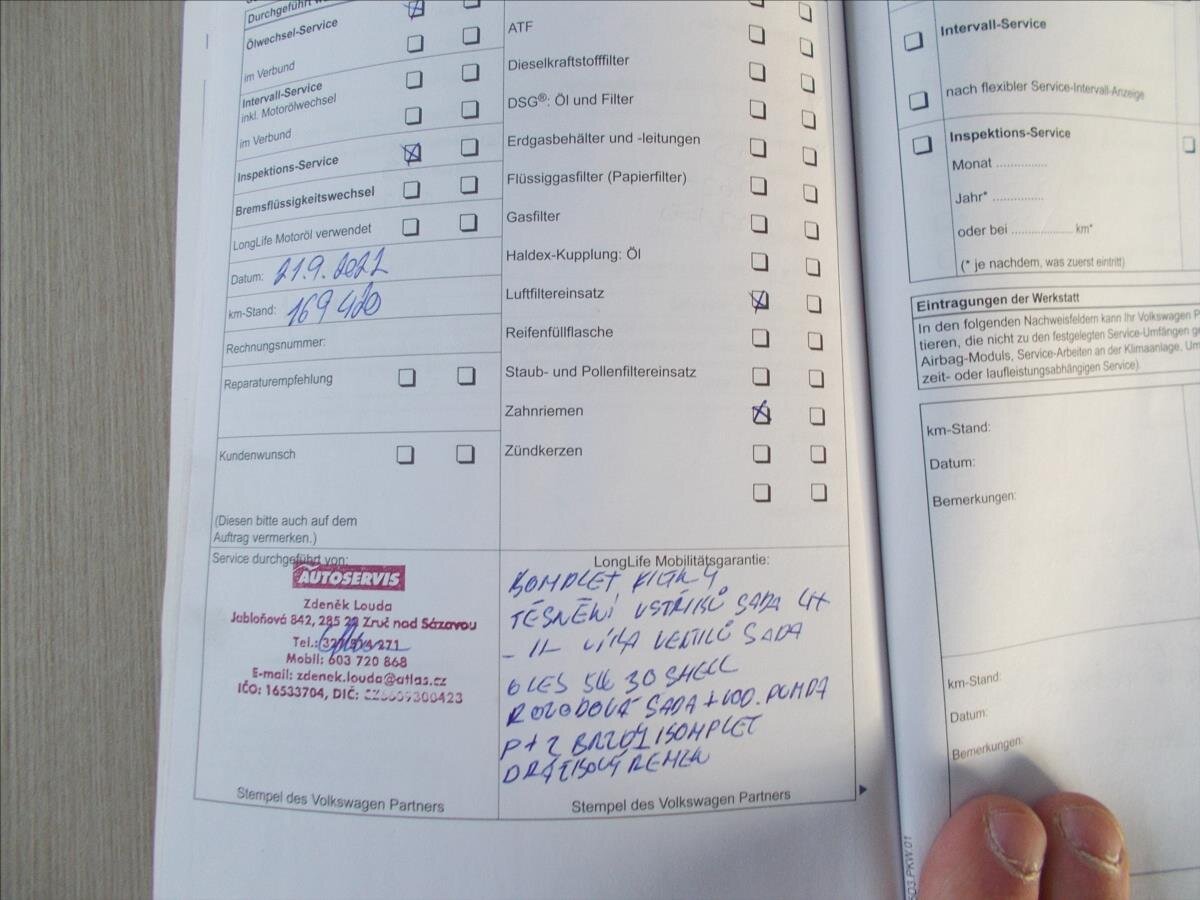 Durchgeführt
Ölwechsel-Service
im Verbund
Intervall-Service
inkl. Motorölwechsel
im Verbund
Inspektions-Service
Bremsflüssigkeitswechsel
LongLife Motoröl verwendet
Datum: 21.9.2021
km-Stand: 169 400
Rechnungsnummer:
Reparaturempfehlung
Kundenwunsch
(Diesen bitte auch auf dem
Auftrag vermerken.)
Service durchgeführt von:
AUTOSERVIS
Zdeněk Louda
Jabloňová 842, 285 22 Zruč nad Sázavou
Tel.:
Mobil: 603 720 868
E-mail: zdenek.louda@atlas.cz
IČO: 16533704, DIČ: CZ5609300423
Stempel des Volkswagen Partners
ATF
Dieselkraftstofffilter
DSG®: Öl und Filter
Erdgasbehälter und -leitungen
Flüssiggasfilter (Papierfilter)
Gasfilter
Haldex-Kupplung: Öl
Luftfiltereinsatz
Reifenfüllflasche
Staub- und Pollenfiltereinsatz
Zahnriemen
Zündkerzen
LongLife Mobilitätsgarantie:
KOMPLET FILTRY
TĚSNĚNÍ VSTŘIKŮ SADA 4X
-11- VÍKA VENTILŮ SADA
OLEJ 5W 30 SHELL
ROZVODOVÁ SADA + VOD. PUMPA
P+Z BRZDY KOMPLET
DRÁŽKOVÝ ŘEMEN
Stempel des Volkswagen Partners
Intervall-Service
nach flexibler Service-Intervall-Anzeige
Inspektions-Service
Monat ..............
Jahr* ..............
oder bei ................. km*
(* je nachdem, was zuerst eintritt)
Eintragungen der Werkstatt
In den folgenden Nachweisfeldern kann Ihr Volkswagen P
tieren, die nicht zu den festgelegten Service-Umfängen ge
Airbag-Moduls, Service-Arbeiten an der Klimaanlage, Um
zeit- oder laufleistungsabhängigen Service).
km-Stand:
Datum:
Bemerkungen:
km-Stand:
Datum:
Bemerkungen: